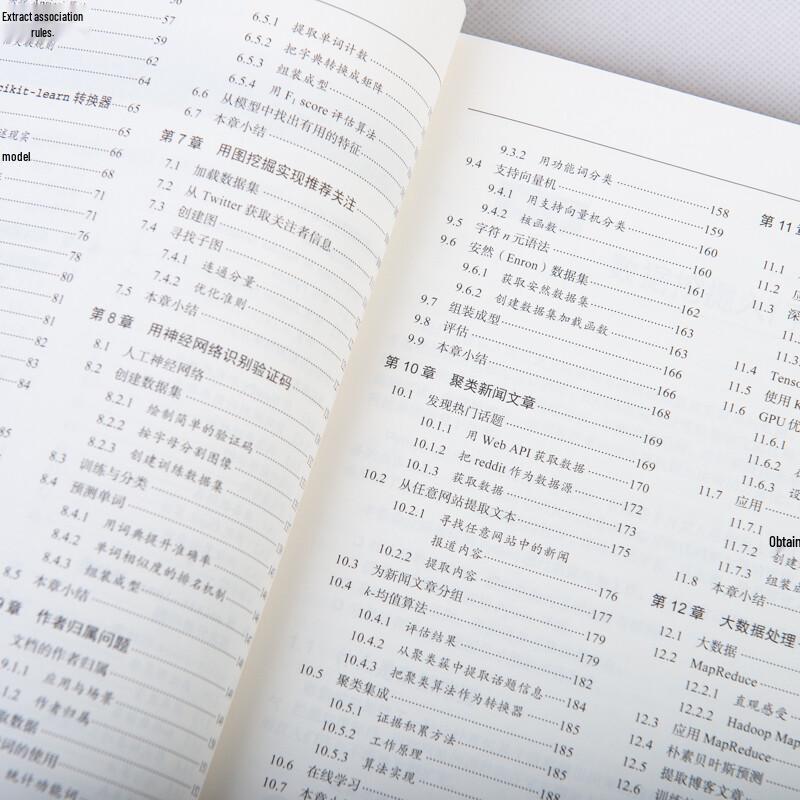 Extract association
rules.
57
59
62
64
cikit-learn 转换器 65
65
述现实 66
model
68
71
71
76
78
80
81
81
82
83
84
85
6.5.1 提取单词计数
6.5.2 把字典转换成矩阵
6.5.3 组装成型
6.5.4 用 F₁ score 评估算法
6.6 从模型中找出有用的特征
6.7 本章小结
第 7 章 用图挖掘实现推荐关注
7.1 加载数据集
7.2 从 Twitter 获取关注者信息
7.3 创建图
7.4 寻找子图
7.4.1 连通分量
7.4.2 优化准则
7.5 本章小结
第 8 章 用神经网络识别验证码
8.1 人工神经网络
8.2 创建数据集
8.2.1 绘制简单的验证码
8.2.2 按字母分割图像
8.2.3 创建训练数据集
8.3 训练与分类
8.4 预测单词
8.4.1 用词典提升准确率
8.4.2 单词相似度的排名机制
8.4.3 组装成型
8.5 本章小结
9 章 作者归属问题
文档的作者归属
9.1.1 应用与场景
1.2 作者归属
取数据
词的使用
统计功能词
9.3.2 用功能词分类 158
9.4 支持向量机 159
9.4.1 用支持向量机分类 160
9.4.2 核函数 160
9.5 字符 n 元语法 161
9.6 安然（Enron）数据集 162
9.6.1 获取安然数据集 163
9.6.2 创建数据集加载函数 163
9.7 组装成型 166
9.8 评估 166
9.9 本章小结 168
第 10 章 聚类新闻文章 169
10.1 发现热门话题 169
10.1.1 用 Web API 获取数据 170
10.1.2 把 reddit 作为数据源 172
10.1.3 获取数据 173
10.2 从任意网站提取文本 175
10.2.1 寻找任意网站中的新闻
报道内容 176
10.2.2 提取内容 177
10.3 为新闻文章分组 179
10.4 k-均值算法 179
10.4.1 评估结果 182
10.4.2 从聚类簇中提取话题信息 184
10.4.3 把聚类算法作为转换器 185
10.5 聚类集成 185
10.5.1 证据积累方法 185
10.5.2 工作原理 188
10.5.3 算法实现
10.6 在线学习
10.7 本章小
第 11 章
11.1
11.2 应
11.3 深
11.3
11.3.
11.4 Tenso
11.5 使用 K
11.6 GPU 优
11.6.1
11.6.2
11.6.3 设
11.7 应用
11.7.1
Obtain
11.7.2 创建
11.7.3 组装成
11.8 本章小结
第 12 章 大数据处理
12.1 大数据
12.2 MapReduce
12.2.1 直观感受
12.2.2 Hadoop Map
12.3 应用 MapReduce
12.4 朴素贝叶斯预测
12.5 提取博客文章
12.6 训练